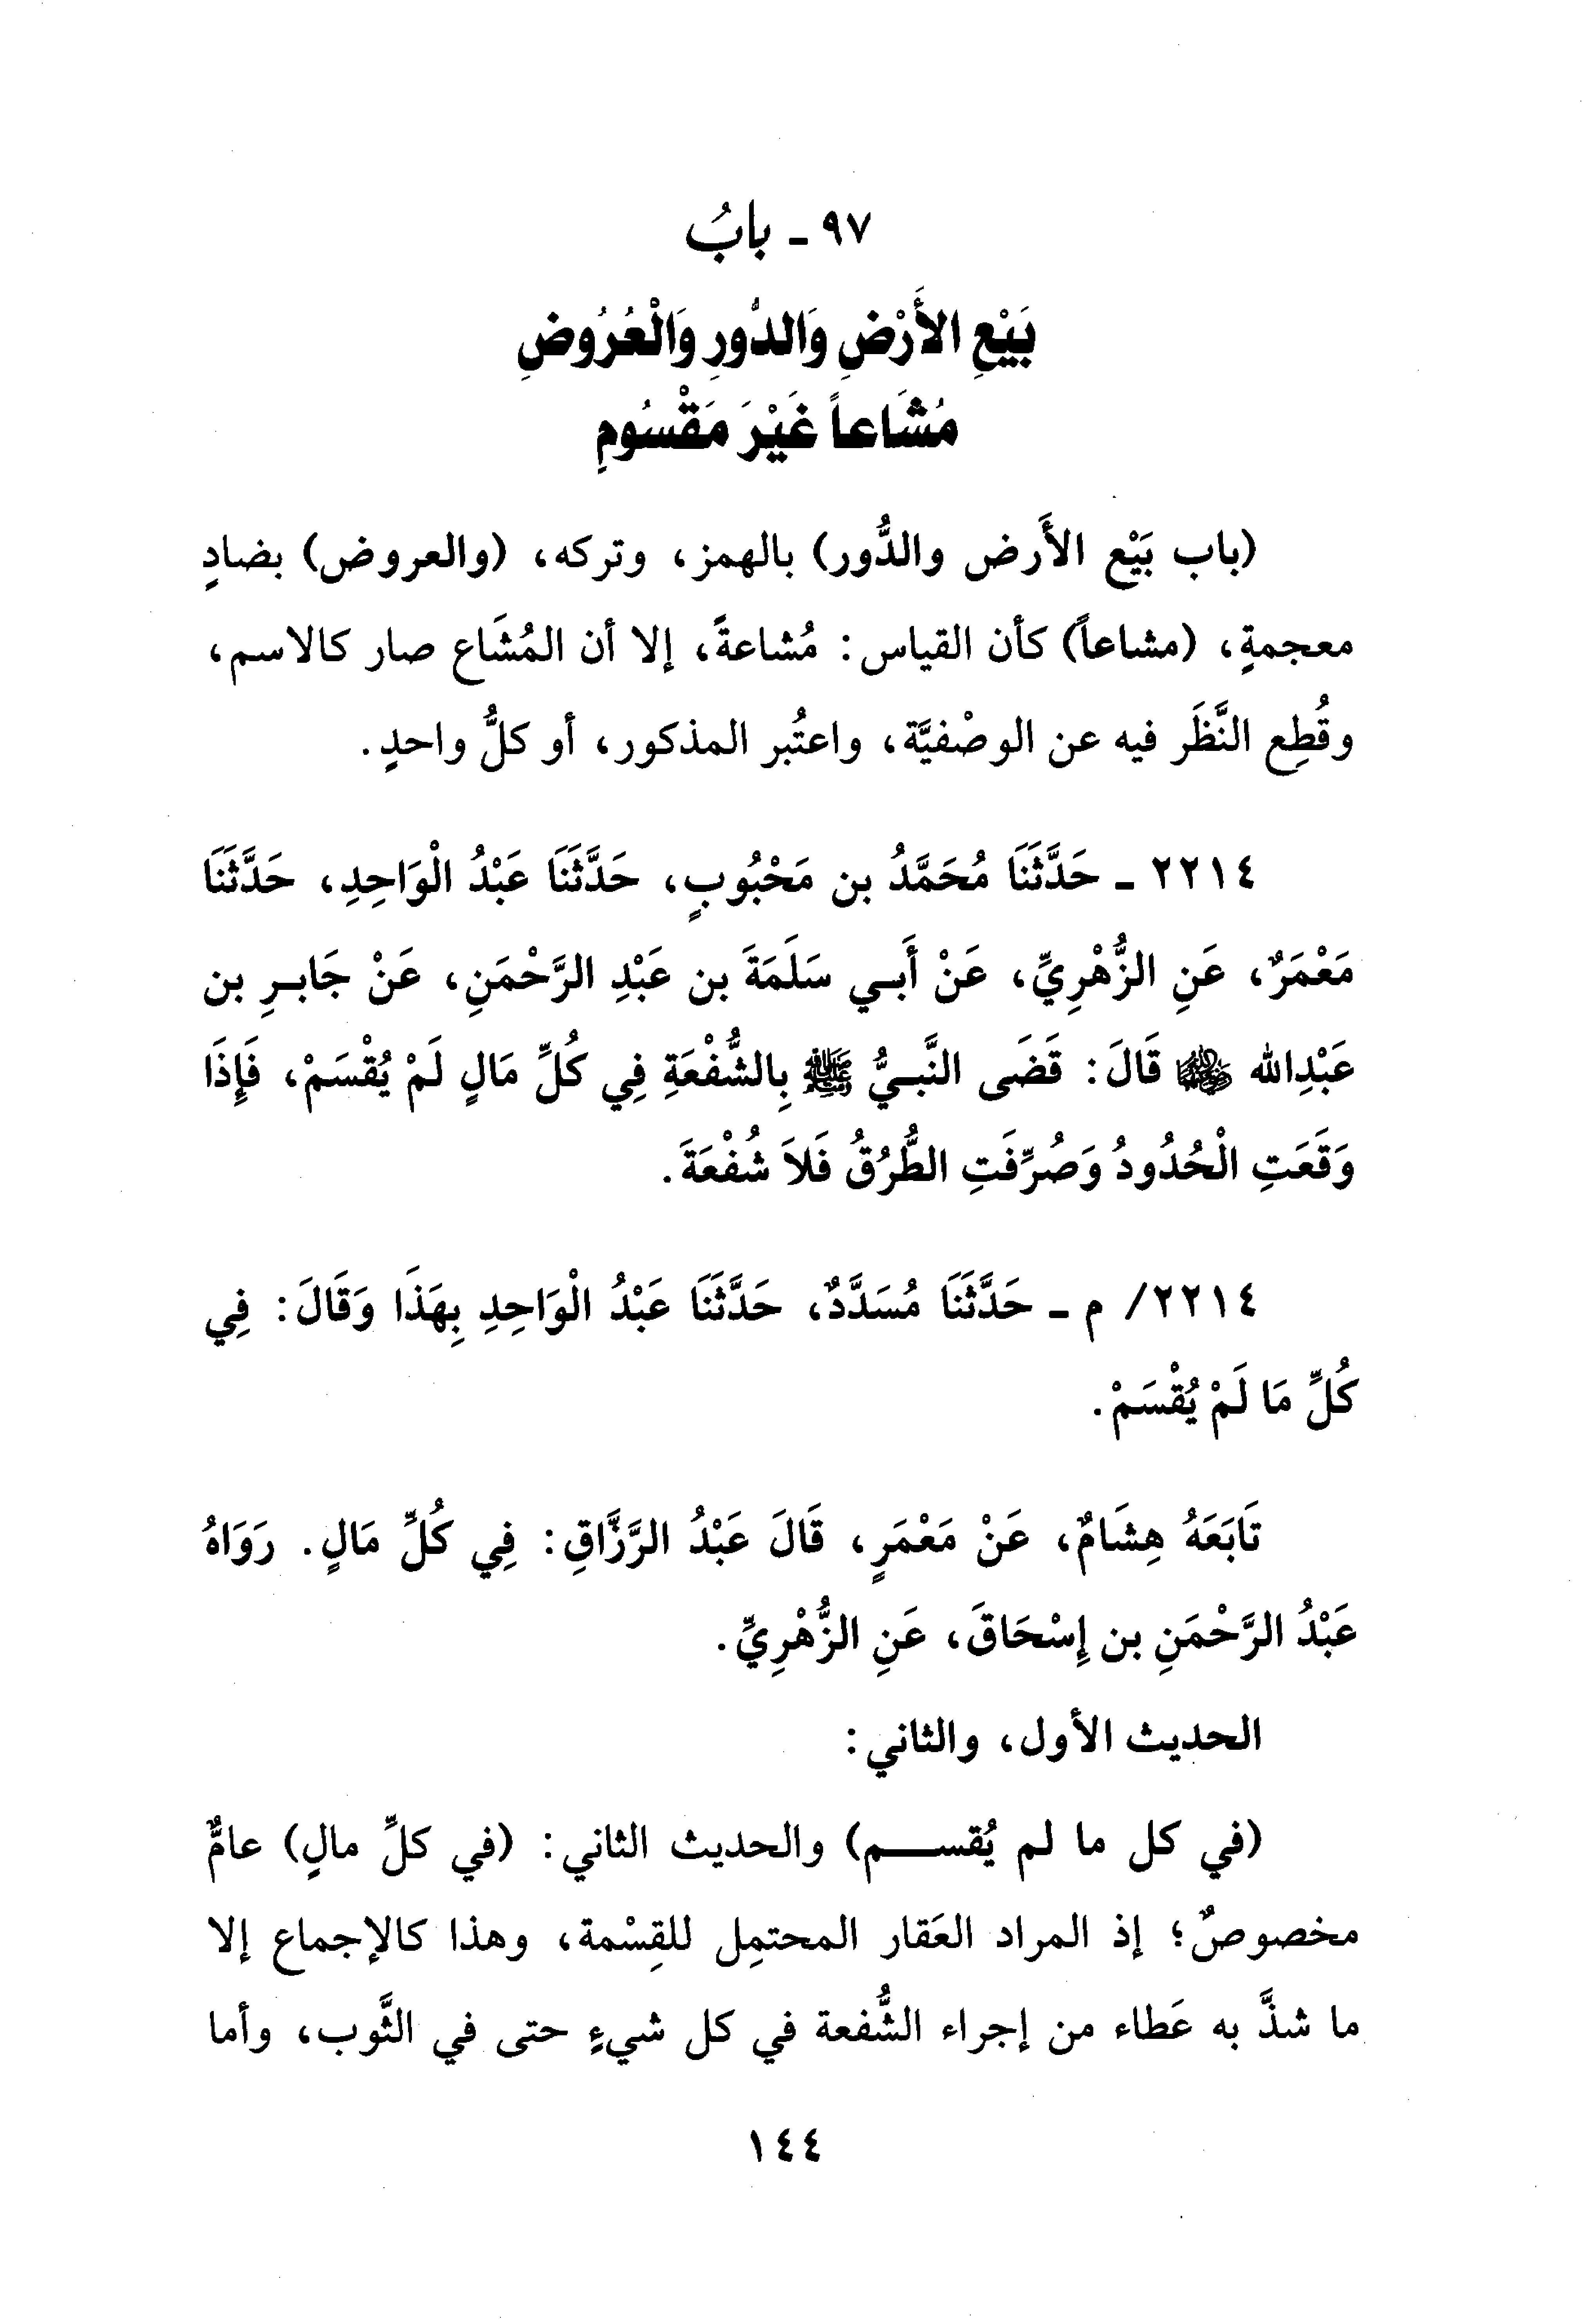 ٩٧ - بابُ
بَيْعِ الأَرْضِ وَالدُّورِ وَالْعُرُوضِ
مُشَاعاً غَيْرَ مَقْسُومٍ
(باب بَيْع الأَرض والدُّور) بالهمز، وتركه، (والعروض) بضادٍ
معجمةٍ، (مشاعاً) كأن القياس: مُشاعةً، إلا أن المُشَاع صار كالاسم،
وقُطِع النَّظَر فيه عن الوصْفيَّة، واعتُبر المذكور، أو كلُّ واحدٍ.
٢٢١٤ - حَدَّثَنَا مُحَمَّدُ بن مَحْبُوبٍ، حَدَّثَنَا عَبْدُ الْوَاحِدِ، حَدَّثَنَا
مَعْمَرٌ، عَنِ الزُّهْرِيِّ، عَنْ أَبِي سَلَمَةَ بن عَبْدِ الرَّحْمَنِ، عَنْ جَابِرِ بن
عَبْدِالله ﵁ قَالَ: قَضَى النَّبِيُّ ﷺ بِالشُّفْعَةِ فِي كُلِّ مَالٍ لَمْ يُقْسَمْ، فَإِذَا
وَقَعَتِ الْحُدُودُ وَصُرِّفَتِ الطُّرُقُ فَلاَ شُفْعَةَ.
٢٢١٤/ م - حَدَّثَنَا مُسَدَّدٌ، حَدَّثَنَا عَبْدُ الْوَاحِدِ بِهَذَا وَقَالَ: فِي
كُلِّ مَا لَمْ يُقْسَمْ.
تَابَعَهُ هِشَامٌ، عَنْ مَعْمَرٍ، قَالَ عَبْدُ الرَّزَّاقِ: فِي كُلِّ مَالٍ. رَوَاهُ
عَبْدُ الرَّحْمَنِ بن إِسْحَاقَ، عَنِ الزُّهْرِيِّ.
الحديث الأول، والثاني:
(في كل ما لم يُقســـم) والحديث الثاني: (في كلِّ مالٍ) عامٌّ
مخصوصٌ؛ إذ المراد العَقار المحتمِل للقِسْمة، وهذا كالإجماع إلا
ما شذَّ به عَطاء من إجراء الشُّفعة في كل شيءٍ حتى في الثَّوب، وأما
١٤٤